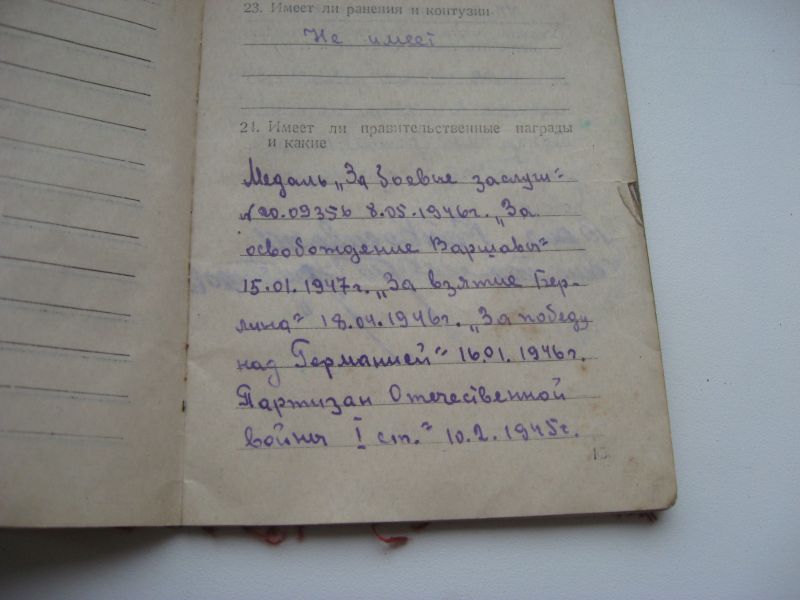 23. Имеет ли ранения и контузии
Не имеет
24. Имеет ли правительственные награды
и какие
Медаль „За боевые заслуги“
№20.09356 8.05.1946г. „За
освобождение Варшавы“
15.01.1947г. „За взятие Бер-
лина“ 18.04.1946г. „За победу
над Германией“ 16.01.1946г.
Партизан Отечественной
войны I ст.“ 10.2.1945г.